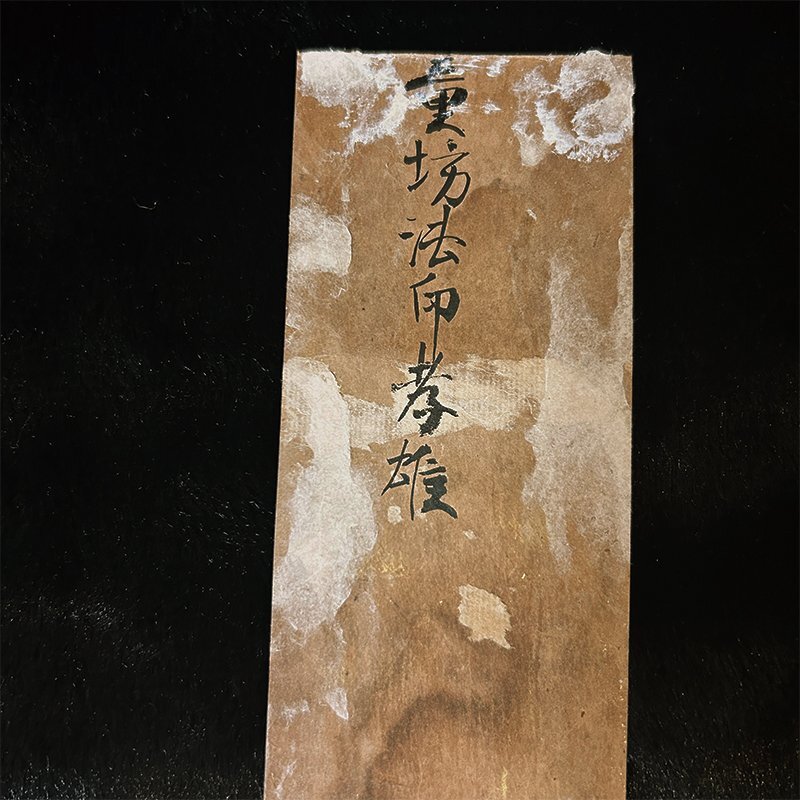 坊法印孝雄